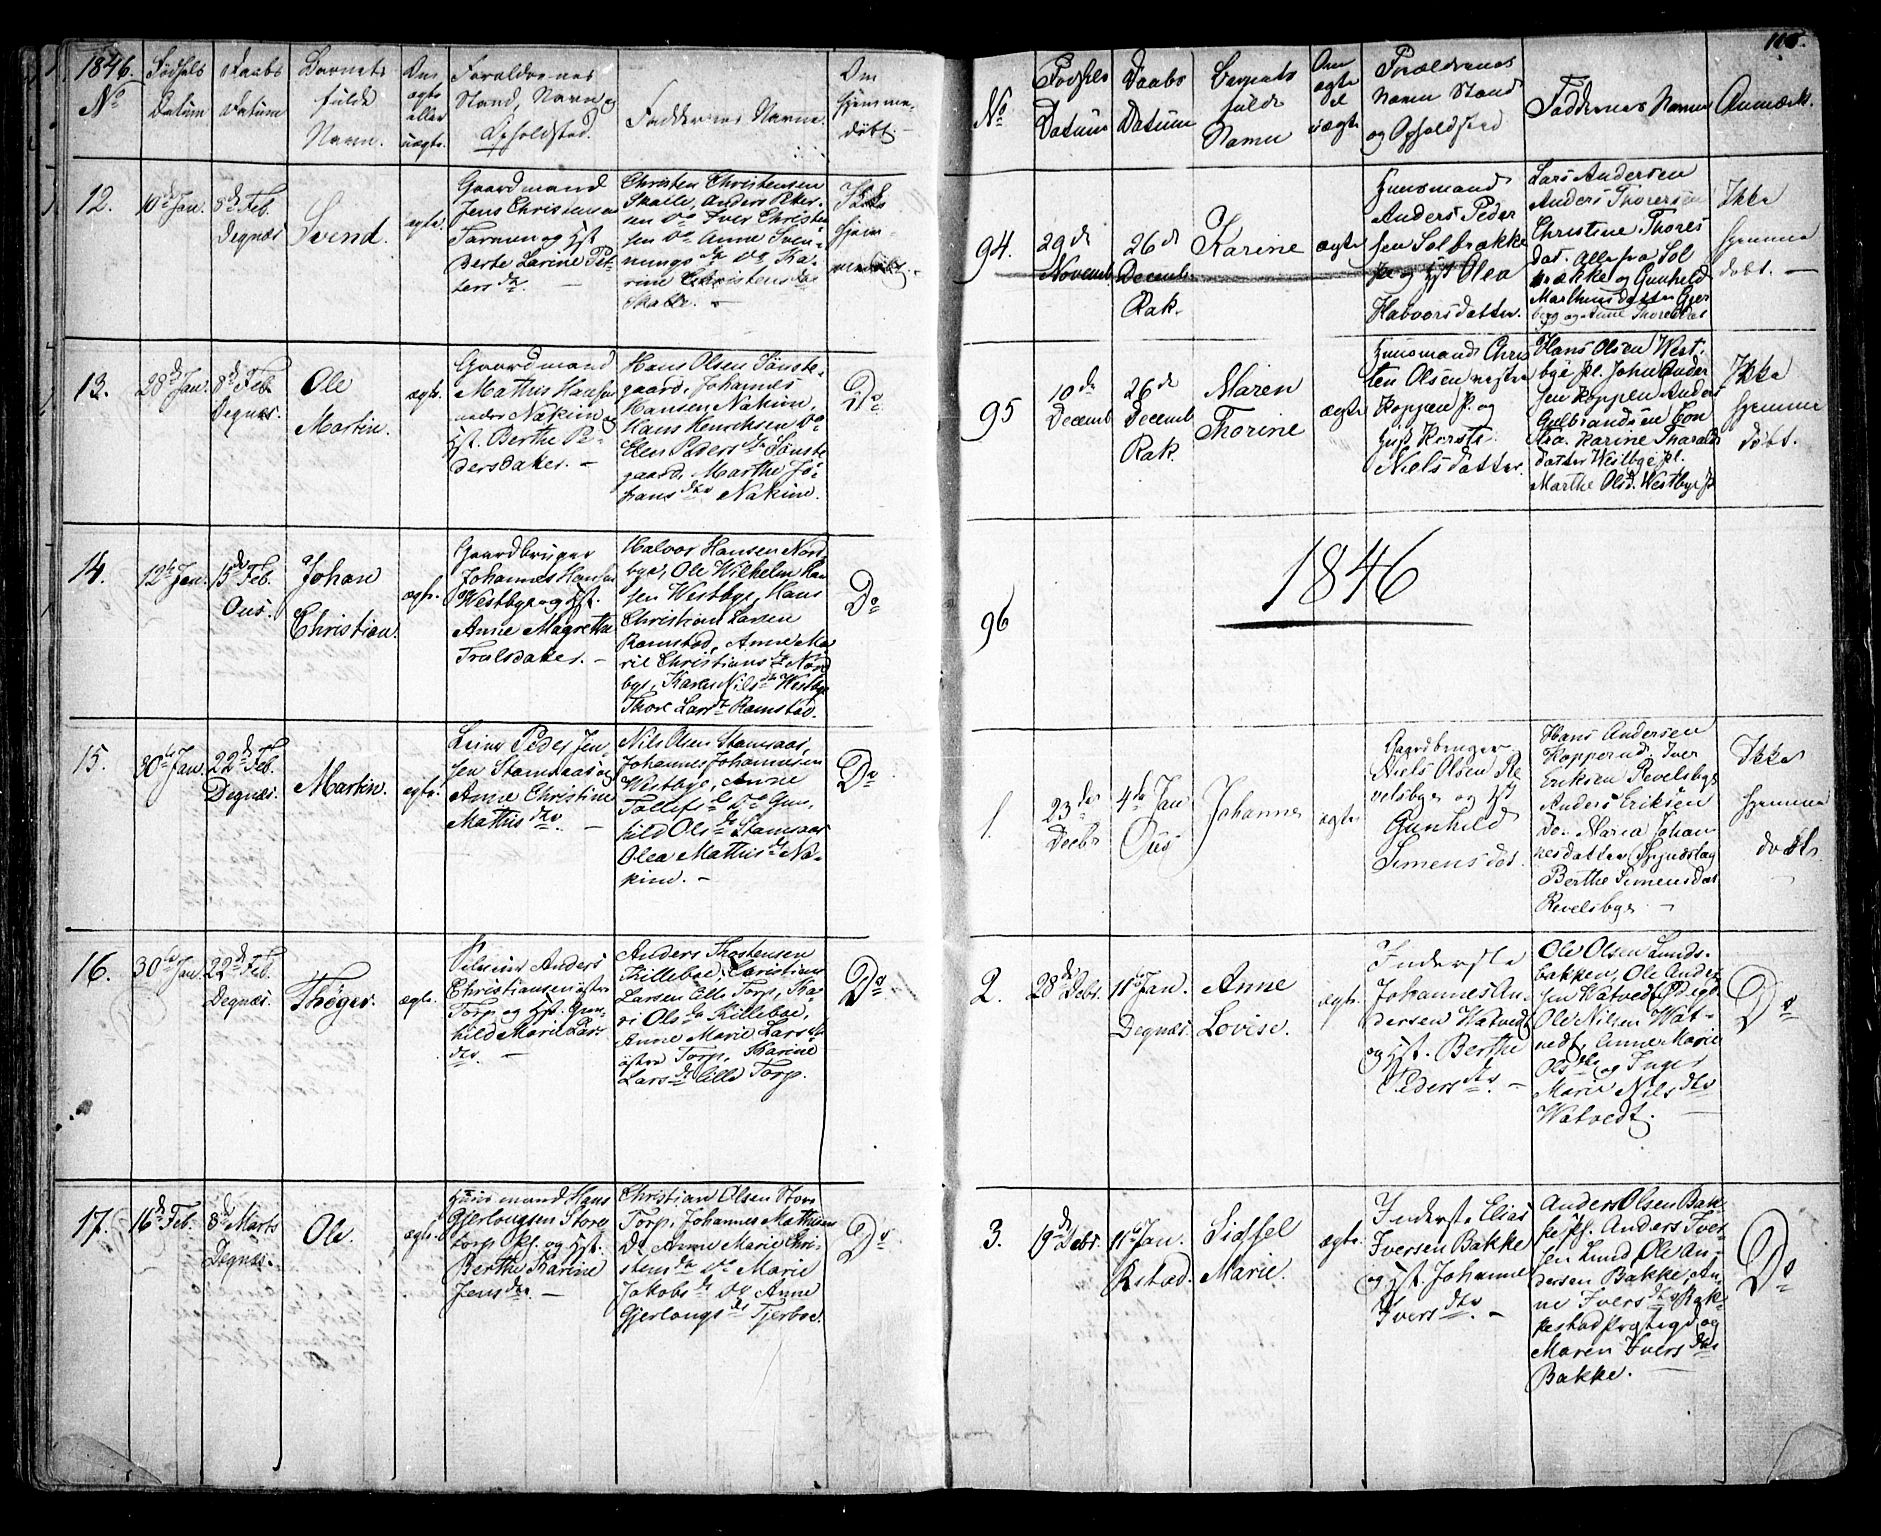 1846.
No
Fødsels
Datum
Daabs
Datum
Barnets
fulde
Navn.
Om
ægte
eller
uægte.
Forældrenes
Stand, Navn og
Opholdsted.
Faddernes Navne.
Om
hjemme-
døbt.
12.
10de Jan.
8de Feb.
Degnæs
Svend.
ægte.
Gaardmand
Jens Christensen
og Hst
Berte Larine Pet-
ters dtr. –
Christen Christensen
Skalle, Anders Peter-
sen do Iver Christen
sen do Anne Sven-
nungs dtr do Ka-
rine Christensdtr
Skalle. –
Ikke
hjem-
medøbt.
13.
28de Jan.
8de Feb.
Degnæs.
Ole
Martin.
ægte.
Gaardmand
Mathis Hansen
Nakim og
Hst. Berthe Pe-
dersdatter. –
Hans Olsen Tønste-
gaard, Johannes
Hansen Nakim,
Hans Henrichsen do
Elen Peders dtr Tønste
gaard, Marthe Jo-
hans dtr Nakim.
Do
14.
12te Jan.
15de Feb.
Ous.
Johan
Christian.
ægte.
Gaardbruger
Johannes Hansen
Westbye og Hst.
Anne Magrethe
Trulsdatter. –
Halvor Hansen Nord-
bye, Ole Wilhelm Han
sen Westbye, Hans
Christian Larsen
Ramstad, Anne Ma
ril Christians dtr Nord
bye, Karen Nils dtr Westbye
Thore Lars dtr Ramstad.
Do
15.
30te Jan.
22de Feb.
Degnæs.
Martin.
ægte.
Peder Jen-
sen Stamsaas og
Anne Christine
Mathis dtr. –
Nils Olsen Stamsaas,
Johannes Johannesen
Westbye, Anne
Tollefs dtr do Gun-
hild Ols dtr Stamsaas
Olea Mathis dtr Na-
kim. –
Do
16.
30te Jan.
22de Feb.
Degnæs.
Thøger.
ægte.
Anders
Christiansen østre
Torp og Hst. Gun-
hild Maril Lars
dtr. –
Anders Thostensen
Killeboe, Christian
Larsen Lille Torp, Ka-
ri Ols dtr Killeboe,
Anne Marie Lars dtr
østre Torp, Karine
Lars dtr Lille Torp.
Do
17.
16de Feb.
8de Marts
Degnæs.
Ole.
ægte.
Huusmand Hans
Gjerlougsen Store
torp Pl. og Hst.
Berthe Karine
Jens dtr. –
Christian Olsen Store
Torp, Johannes Mathisen
Do Anne Marie Chri-
stens dtr do Marie
Jakobs dtr do Anne
Gjerlougs dtr Tjerboe.
Do
No
Fødsels
Datum
Daabs
Datum
Barnets
fulde
Navn
Om
ægte
el
uægte
Forældrenes
Navn Stand
og Opholdsted
Faddernes Navne
Anmærk.
94.
29de
Novemb
26de
Decemb.
Rak.
Karine
ægte
Huusmand
Anders Peder
sen Solbrække
pe og Hst Olea
Halvorsdatter.
Lars Andersen
Anders Thoresen
Christine Thores
dat. Alle fra Sol
brække og Gunhild
Mathiusdatter Gjer
berg og Anne Thoresdat
Ikke
hjemme
døbt. –
95
10de
Decemb
26de
Decemb
Rak.
Maren
Thorine
ægte
Huusmand Chris
ten Olsen vestre
Koppen p. og
Hust Kerste
Nielsdatter.
Hans Olsen West-
bye pl. John Ander
sen Koppen Anders
Gulbrandsen
Karine Tharalds
datter Westbye pl.
Marthe Olsd. Westbye p
Ikke
hjemme
døbt.
96
1846
1.
23de
Decbr
4de Jan
Ous
Johannes
ægte
Gaardbruger
Niels Olsen Re
velsbye og Hst
Gunhild
Simensdat.
Hans Andersen
Kopperud, Iver
Eriksen Revelsbye
Anders Eriksen
Do. Maria Johan
nesdatter
Berthe Simensdat
Revelsbye –
Ikke
hjemme
døbt.
2.
28de Decbr.
11te Jan.
Degnæs.
Anne
Lovise.
ægte.
Inderste
Johannes An-
dersen Watvedt
og Hst. Berthe
Peders dtr. –
Ole Olsen Lunds-
bakken, Ole Ander
sen Watvedt,
Ole Nilsen Wat-
vedt, Anne Marie
Ols dtr og Inger
Marie Nils dtr
Watvedt. –
Do
3.
19de Decbr.
11te Jan.
Rkstad.
Sidsel
Marie.
ægte.
Inderste Elias
Iversen Bakke
og Hst. Johanne
Ivers dtr. –
Anders Olsen Bak-
ke pl. Anders Iver-
sen Lund, Ole An-
dersen Bakke, An-
ne Ivers dtr Rak-
kestad Prgjeld, og
Maren Ivers dtr
Bakke. –
Do